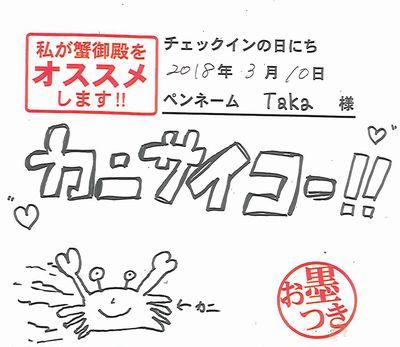 私が蟹御殿を
オススメ
します!!
チェックインの日にち
2018年 3月 10日
ペンネーム Taka 様
"カニサイコー!!"
←カニ
お墨つき